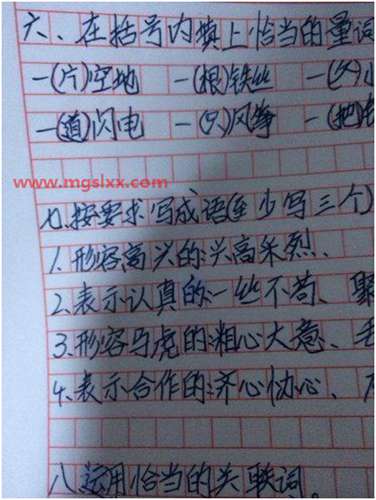 六、在括号内填上恰当的量词
一(片)空地 一(根)铁丝 一(个)小
一(道)闪电 一(只)风筝 一(把
www.mgslxx.com
七、按要求写成语(至少写三个)
1.形容高兴的:兴高采烈、
2.表示认真的:一丝不苟、聚
3.形容马虎的:粗心大意、毛
4.表示合作的:齐心协心、
八、运用恰当的关联词